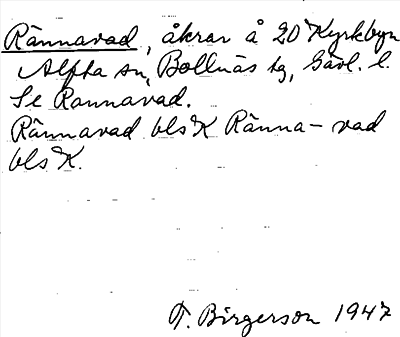 Rännavad, åkrar å 20 Kyrkbyn
Alfta sn, Bollnäs tg, Gävl. l.
Se Rannavad.
Rännavad bls K Ränna-vad
bls K.
T. Birgerson 1947